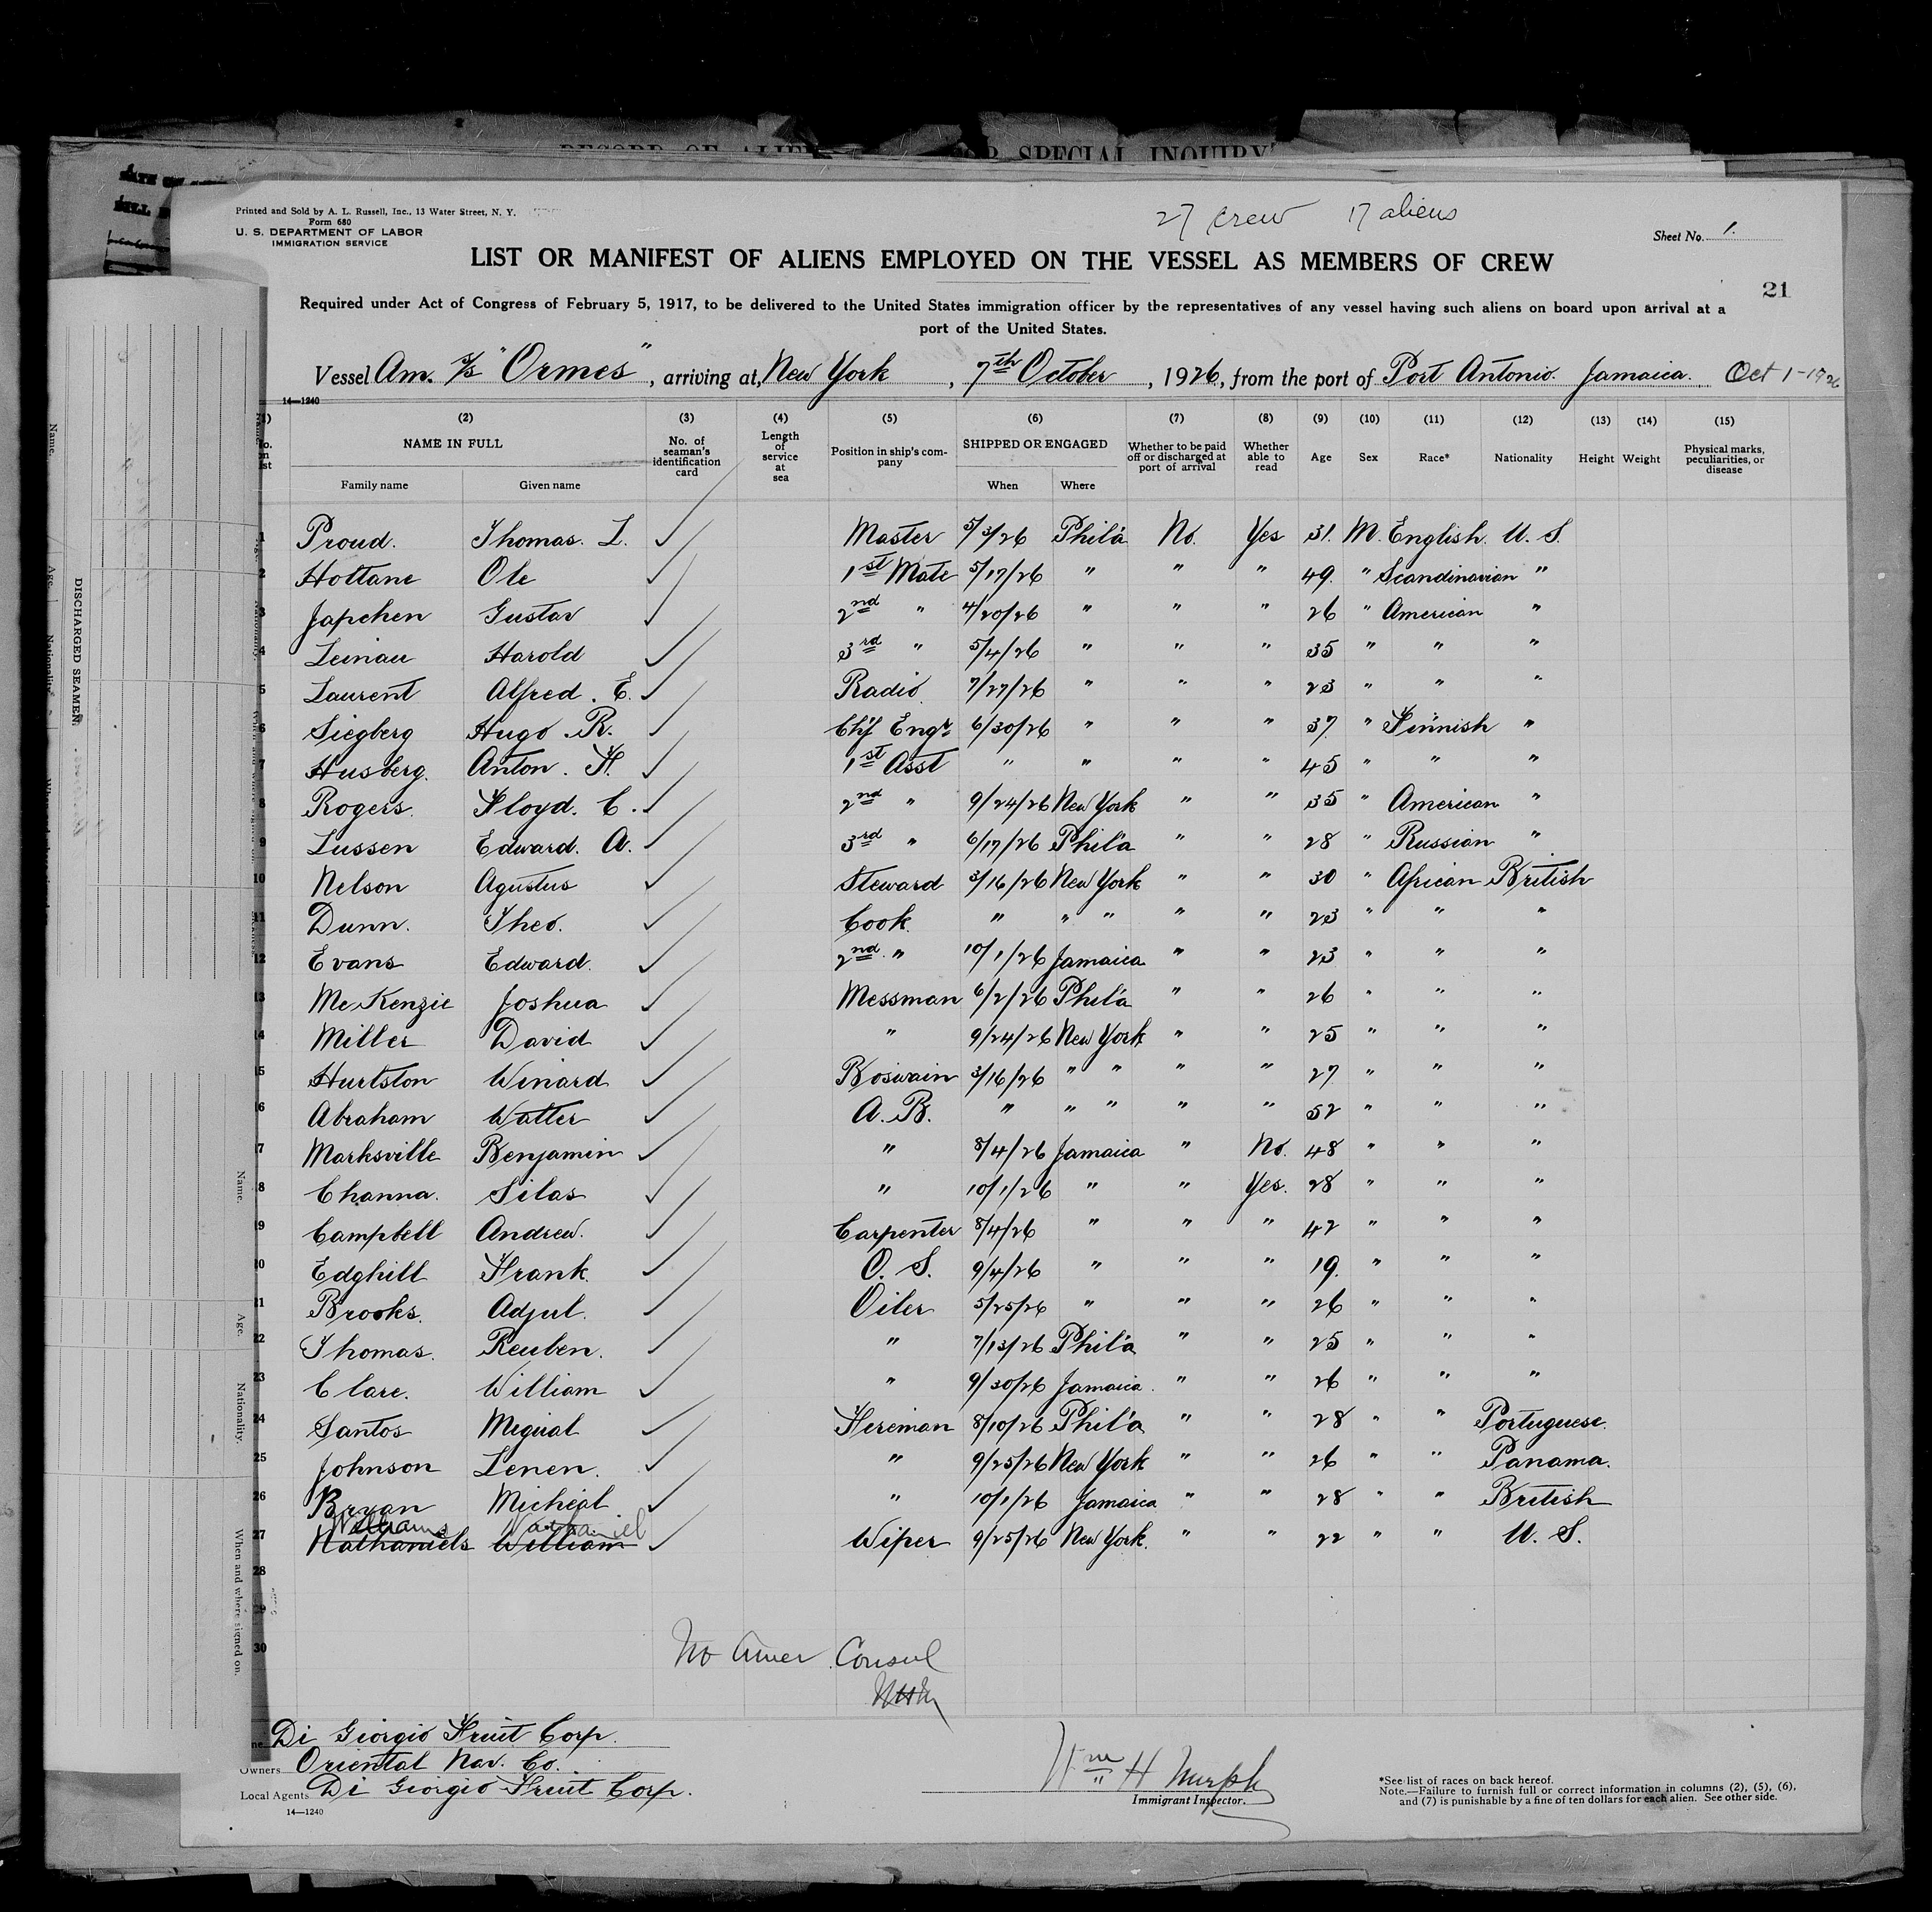 RECORD OF ALIENS FOR SPECIAL INQUIRY
Printed and Sold by A. L. Russell, Inc., 13 Water Street, N. Y.
Form 680
U. S. DEPARTMENT OF LABOR
IMMIGRATION SERVICE
27 crew 17 aliens
Sheet No. 1.
LIST OR MANIFEST OF ALIENS EMPLOYED ON THE VESSEL AS MEMBERS OF CREW
21
Required under Act of Congress of February 5, 1917, to be delivered to the United States immigration officer by the representatives of any vessel having such aliens on board upon arrival at a
port of the United States.
Vessel Am. S/S "Ormes", arriving at, New York, 7th October, 1926, from the port of Port Antonio. Jamaica. Oct 1-1926
14—1240
(2) (3) (4) (5) (6) (7) (8) (9) (10) (11) (12) (13) (14) (15)
NAME IN FULL No. of seaman's identification card Length of service at sea Position in ship's company SHIPPED OR ENGAGED Whether to be paid off or discharged at port of arrival Whether able to read Age Sex Race* Nationality Height Weight Physical marks, peculiarities, or disease
Family name Given name When Where
1 Proud. Thomas. L. Master 5/3/26 Phil'a No. Yes 31. M. English. U. S.
2 Hottane Ole 1st Mate 5/17/26 " " " 49. " Scandinavian "
3 Japchen Gustav 2nd " 4/20/26 " " " 26 " American "
4 Leinau Harold 3rd " 5/4/26 " " " 35 " " "
5 Laurent Alfred. E. Radio 7/27/26 " " " 23 " " "
6 Siegberg Hugo. R. Chf Engr 6/30/26 " " " 37. " Finnish "
7 Husberg. Anton. H. 1st Asst " " " " 45 " " "
8 Rogers. Floyd. C. 2nd " 9/24/26 New York " " 35 " American "
9 Lussen Edward. A. 3rd " 6/17/26 Phil'a " " 28 " Russian "
10 Nelson Agustus Steward 3/16/26 New York " " 30 " African British
11 Dunn. Theo. Cook. " " " " " 23 " " "
12 Evans Edward. 2nd " 10/1/26 Jamaica " " 23 " " "
13 McKenzie Joshua Messman 6/2/26 Phil'a " " 26 " " "
14 Miller David " 9/24/26 New York " " 25 " " "
15 Hurtston Winard Boswain 3/16/26 " " " " 27. " " "
16 Abraham Walter A. B. " " " " " 52 " " "
17 Marksville Benjamin " 8/4/26 Jamaica " No. 48 " " "
18 Channa. Silas " 10/1/26 " " Yes. 28 " " "
19 Campbell Andrew. Carpenter 8/4/26 " " " 42 " " "
20 Edghill Frank. O. S. 9/4/26 " " " 19. " " "
21 Brooks. Adjul. Oiler 5/25/26 " " " 26 " " "
22 Thomas. Reuben. " 7/13/26 Phil'a " " 25 " " "
23 Clare. William " 9/30/26 Jamaica. " " 26 " " "
24 Santos Megual Fireman 8/10/26 Phil'a " " 28 " " Portuguese.
25 Johnson Lenen. " 9/25/26 New York " " 26 " " Panama.
26 Bryan Micheal " 10/1/26 Jamaica " " 28 " " British
Williams Nathaniel
27 Nathaniels William Wiper 9/25/26 New York. " " 22 " " U. S.
28
29
30
No Amer. Consul
Di Giorgio Fruit Corp.
Owners Oriental Nav. Co.
Local Agents Di Giorgio Fruit Corp.
14—1240
Wm H Murphy
Immigrant Inspector.
*See list of races on back hereof.
Note.—Failure to furnish full or correct information in columns (2), (5), (6),
and (7) is punishable by a fine of ten dollars for each alien. See other side.
DISCHARGED SEAMEN
Name.
Age.
Nationality.
Name.
Age.
Nationality.
When and where signed on.